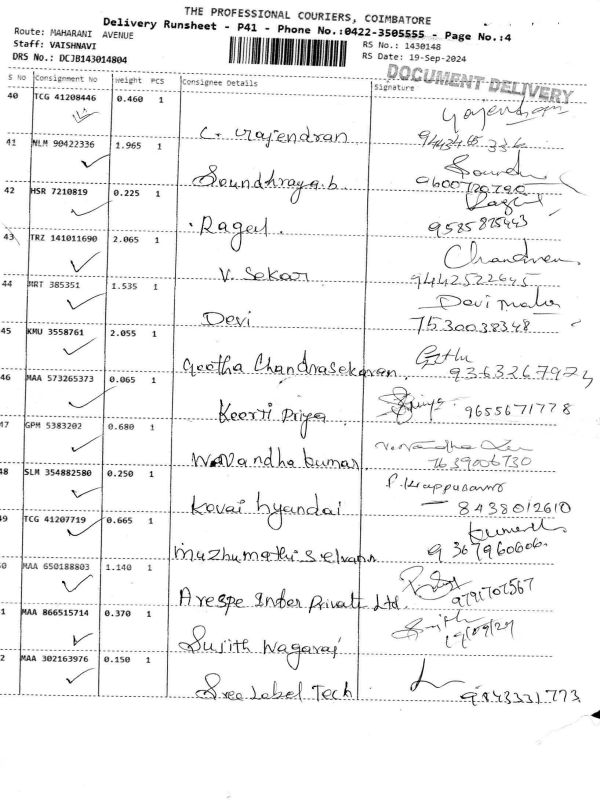 THE PROFESSIONAL COURIERS, COIMBATORE
Delivery Runsheet - P41 - Phone No.:0422-3505555 - Page No.:4
Route: MAHARANI AVENUE
Staff: VAISHNAVI
DRS No.: DCJB143014804
RS No.: 1430148
RS Date: 19-Sep-2024
DOCUMENT DELIVERY
S No Consignment No Weight PCS Consignee Details Signature
40 TCG 41208446 0.460 1
C. Rajendran
41 NLM 90422336 1.965 1
Soundhraya.b 9600720790
42 HSR 7210819 0.225 1
Ragul. 9585825443
43 TRZ 141011690 2.065 1 Chandran
V. Sekar 9442522645
44 MRT 385351 1.535 1 Devi
Devi 7530038348
45 KMU 3558761 2.055 1
Geetha Chandrasekaran
46 MAA 573265373 0.065 1
Keerti Priya 9655671778
47 GPM 5383202 0.680 1
7639006730
48 SLM 354882580 0.250 1
Kovai hyundai 8438012610
49 TCG 41207719 0.665 1
muzhumathi selvann 9367960606
0 MAA 650188803 1.140 1
Arespe Inter Private Ltd. 9791707567
1 MAA 866515714 0.370 1 Sujith
Sujith Nagaraj 19/09/24
2 MAA 302163976 0.150 1
Sree Label Tech 9843331773